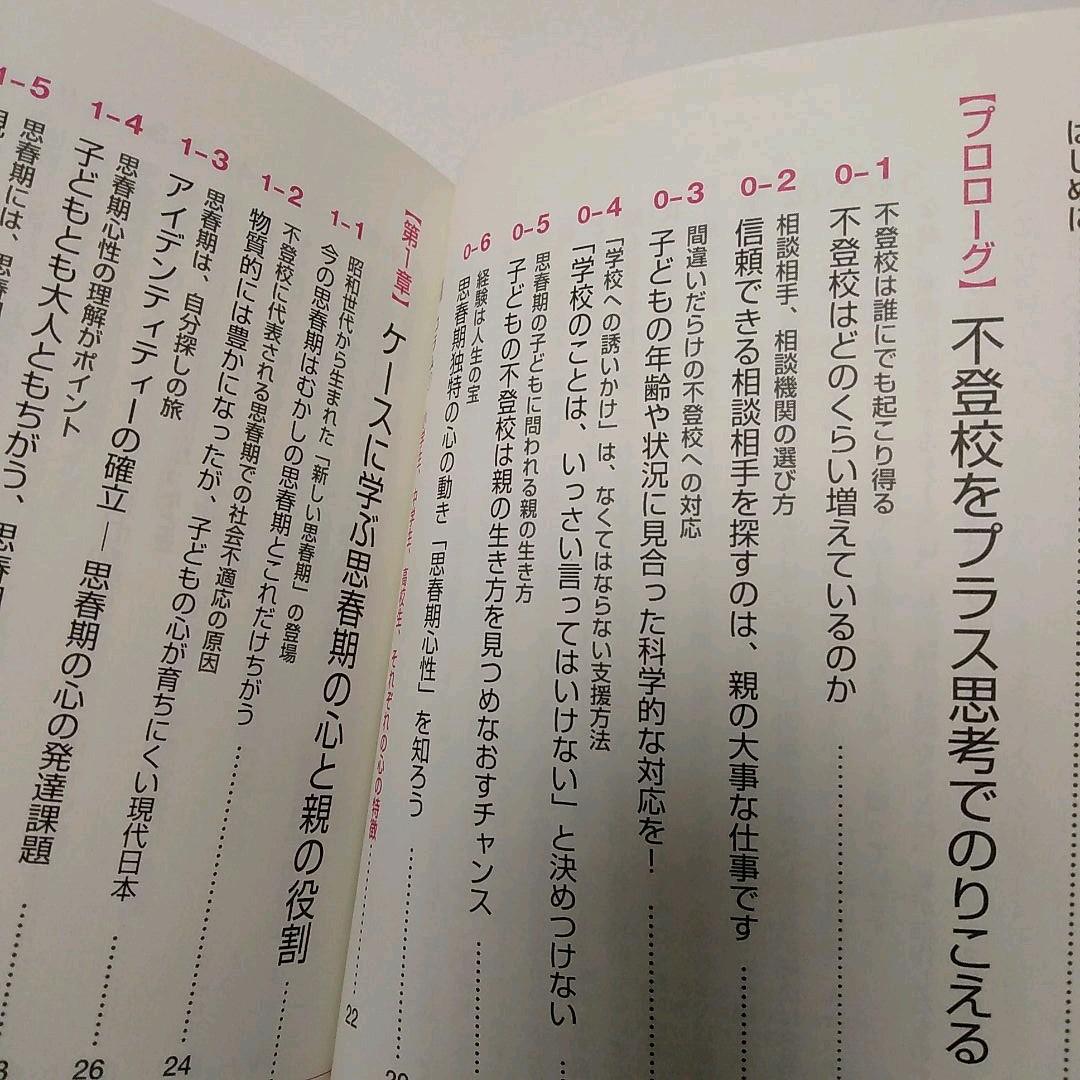 はじめに
【プロローグ】 不登校をプラス思考でのりこえる
0-1
不登校は誰にでも起こり得る
不登校はどのくらい増えているのか
0-2
相談相手、相談機関の選び方
信頼できる相談相手を探すのは、親の大事な仕事です
0-3
間違いだらけの不登校への対応
子どもの年齢や状況に見合った科学的な対応を！
0-4
「学校への誘いかけ」は、なくてはならない支援方法
「学校のことは、いっさい言ってはいけない」と決めつけない
0-5
思春期の子どもに問われる親の生き方
子どもの不登校は親の生き方を見つめなおすチャンス
0-6
経験は人生の宝
思春期独特の心の動き「思春期心性」を知ろう
高校生、それぞれの心の特徴
22
【第1章】 ケースに学ぶ思春期の心と親の役割
1-1
昭和世代から生まれた「新しい思春期」の登場
今の思春期はむかしの思春期とこれだけちがう
1-2
不登校に代表される思春期での社会不適応の原因
物質的には豊かになったが、子どもの心が育ちにくい現代日本
24
1-3
思春期は、自分探しの旅
アイデンティティーの確立 ― 思春期の心の発達課題
26
1-4
思春期心性の理解がポイント
子どもとも大人ともちがう、思春
1-5
思春期には、思春